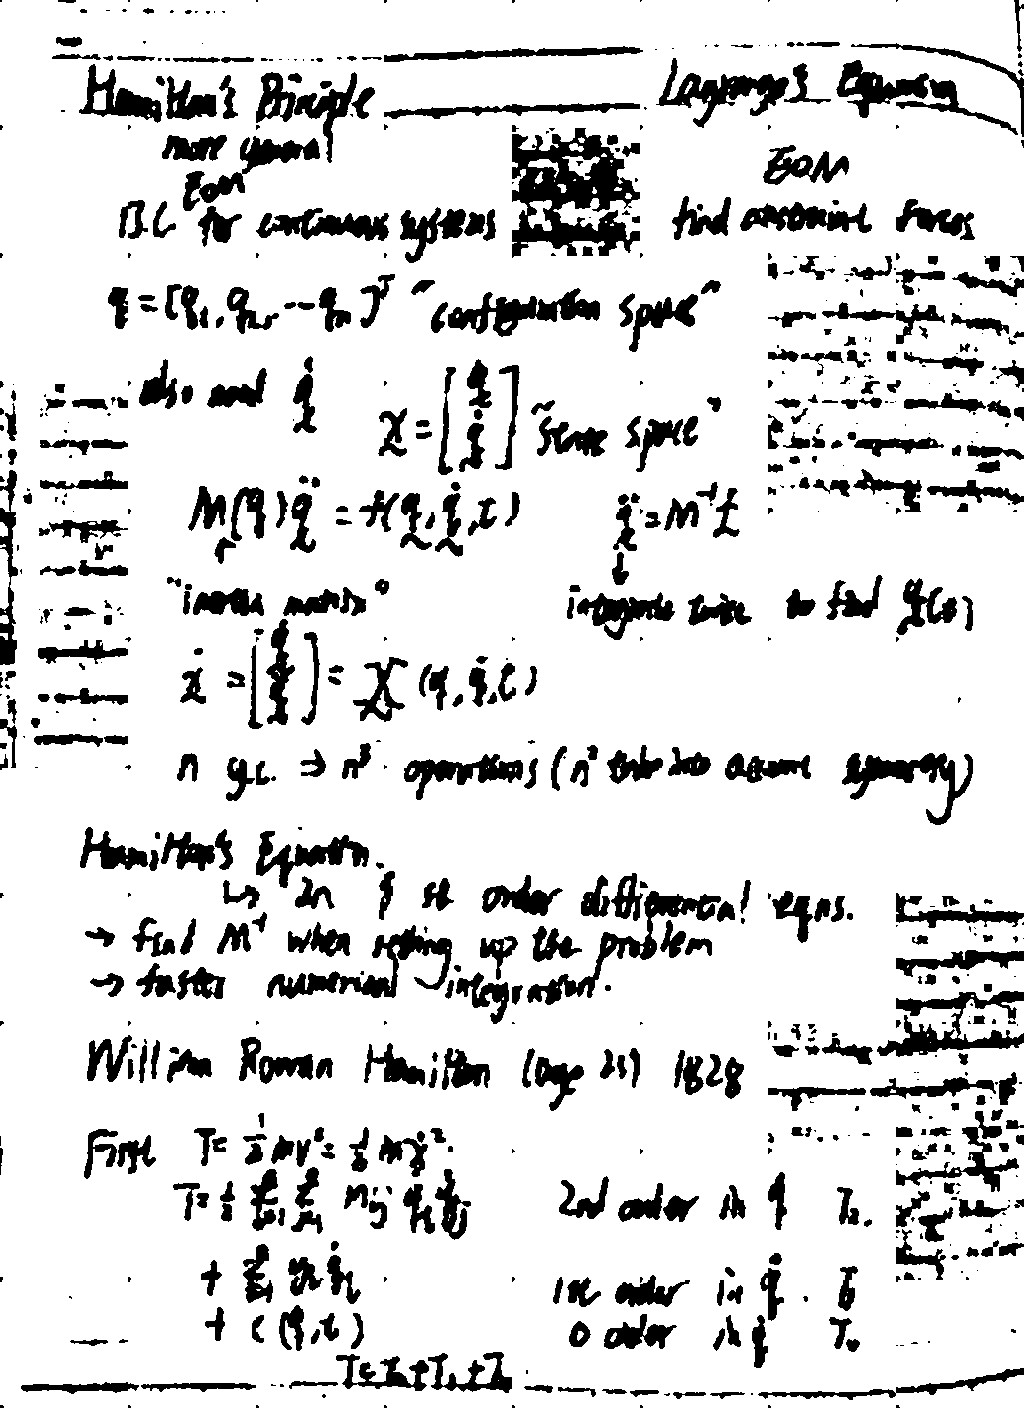 Hamilton's Principle — Lagrange's Equation
more general
EOM EOM
B.C for continuous systems find constraint forces
q = [q₁, q₂, ... qₙ]ᵀ "configuration space"
also need q̇ x = [q q̇] "state space"
M(q)q̈ = f(q, q̇, t) q̈ = M⁻¹f
"inertia matrix" integrate twice to find q(t)
ẋ = [q̇ q̈] = X(q, q̇, t)
n g.c. → n³ operations (n² take into account symmetry)
Hamilton's Equation.
↳ 2n 1st order differential eqns.
→ find M⁻¹ when setting up the problem
→ faster numerical integration.
William Rowan Hamilton (age 23) 1828
First T = ½mv² = ½mẋ².
T = ½ Σ Σ mᵢⱼ q̇ᵢ q̇ⱼ 2nd order in q̇ T₂.
+ Σ q̇ᵢ 1st order in q̇. T₁
+ c(q,t) 0 order in q̇ T₀
T = T₂ + T₁ + T₀